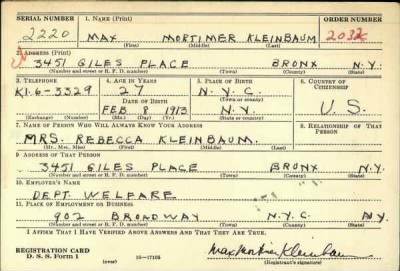 SERIAL NUMBER 1. NAME (Print) ORDER NUMBER
2220 MAX MORTIMER KLEINBAUM 2032
(First) (Middle) (Last)
2. ADDRESS (Print)
3451 GILES PLACE BRONX N.Y.
(Number and street or R. F. D. number) (Town) (County) (State)
3. TELEPHONE 4. AGE IN YEARS 5. PLACE OF BIRTH 6. COUNTRY OF CITIZENSHIP
KI.6-3329 27 N.Y.C. U.S.
DATE OF BIRTH (Town or county)
FEB 8 1913 N.Y.
(Exchange) (Number) (Mo.) (Day) (Yr.) (State or country)
7. NAME OF PERSON WHO WILL ALWAYS KNOW YOUR ADDRESS 8. RELATIONSHIP OF THAT PERSON
MRS. REBECCA KLEINBAUM.
(Mr., Mrs., Miss) (First) (Middle) (Last)
9. ADDRESS OF THAT PERSON
3451 GILES PLACE BRONX N.Y.
(Number and street or R. F. D. number) (Town) (County) (State)
10. EMPLOYER'S NAME
DEPT. WELFARE
11. PLACE OF EMPLOYMENT OR BUSINESS
902 BROADWAY N.Y.C. NY.
(Number and street or R. F. D. number) (Town) (County) (State)
I AFFIRM THAT I HAVE VERIFIED ABOVE ANSWERS AND THAT THEY ARE TRUE.
REGISTRATION CARD
D. S. S. Form 1 (over) 16—17105
Max Mortimer Kleinbaum
(Registrant's signature)